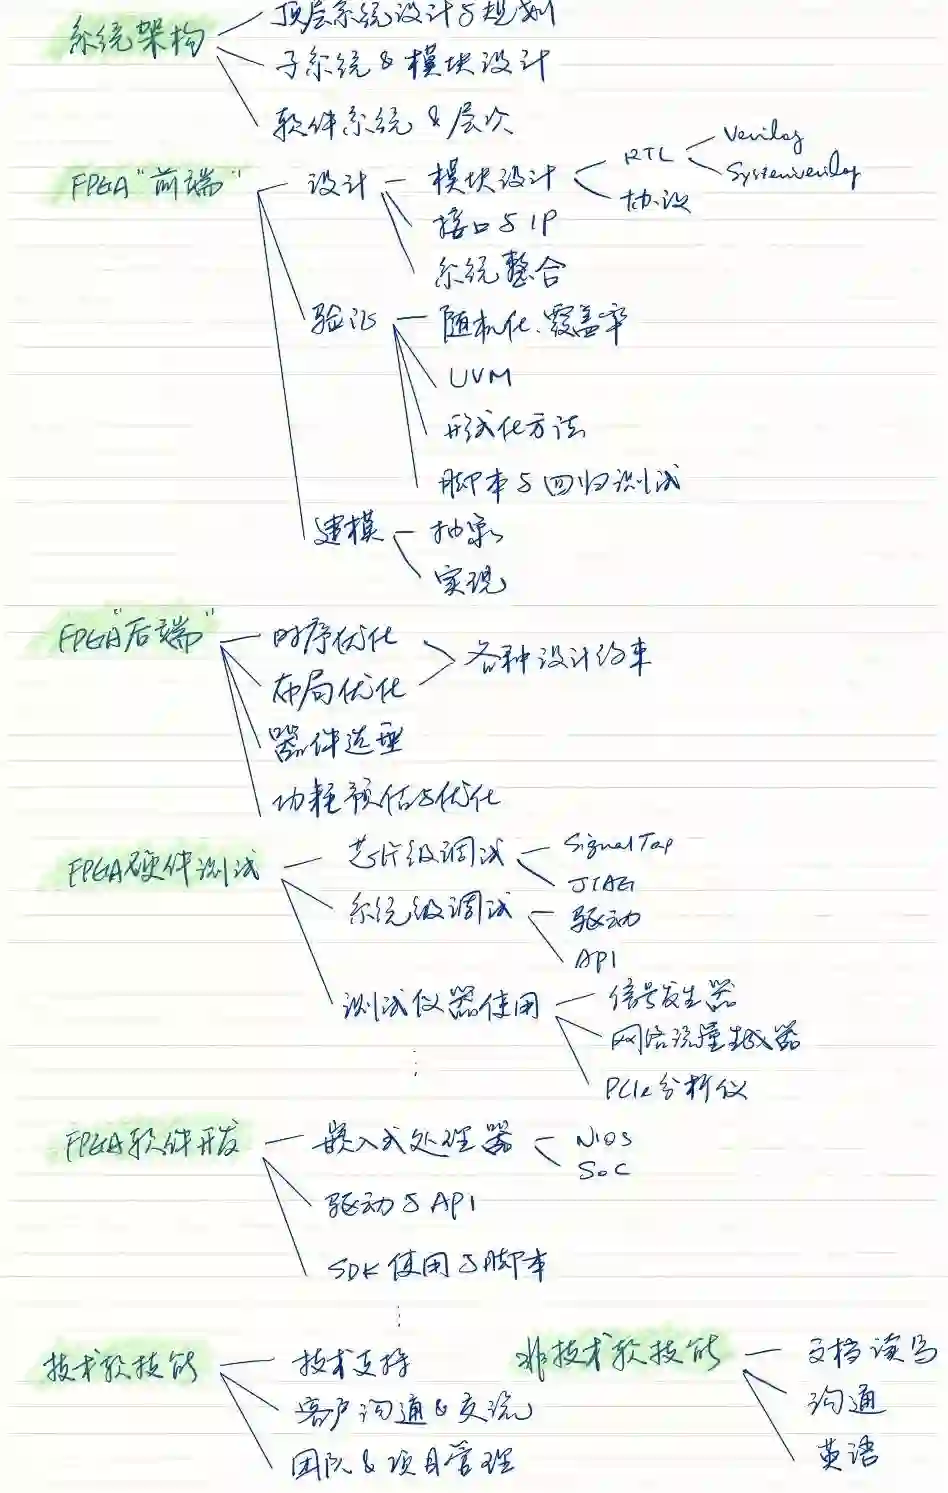 顶层系统设计与规划
系统架构
子系统 & 模块设计
软件系统 & 层次
Verilog
FPGA "前端" 设计 模块设计 RTL
Systemverilog
协议
接口与IP
系统整合
验证 随机化、覆盖率
UVM
形式化方法
脚本与回归测试
建模 抽象
实现
FPGA "后端" 时序优化
各种设计约束
布局优化
器件选型
功耗预估与优化
FPGA硬件测试 芯片级调试 SignalTap
JTAG
系统级调试 驱动
API
测试仪器使用 信号发生器
网络流量生成器
PCIe分析仪
FPGA软件开发 嵌入式处理器 NIOS
SoC
驱动与API
SDK使用与脚本
技术软技能 技术支持
客户沟通 & 交流
团队 & 项目管理
非技术软技能 文档读写
沟通
英语